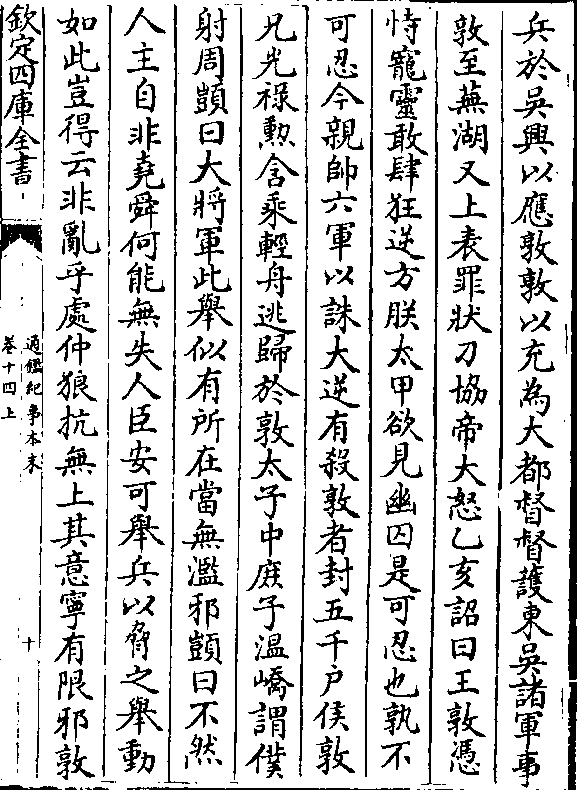 兵於吳興以應敦敦以充為大都督督護東吳諸軍事
敦至蕪湖又上表罪狀刁協帝大怒乙亥詔曰王敦憑
恃寵靈敢肆狂逆方朕太甲欲見幽囚是可忍也孰不
可忍今親帥六軍以誅大逆有殺敦者封五千戶侯敦
兄光祿勲含乘輕舟逃歸於敦太子中庶子溫嶠謂僕
射周顗曰大將軍此舉似有所在當無濫邪顗曰不然
人主自非堯舜何能無失人臣安可舉兵以脅之舉動
如此豈得云非亂乎處仲狼抗無上其意寧有限邪敦
欽定四庫全書
通鑑紀事本末
卷十四上
十